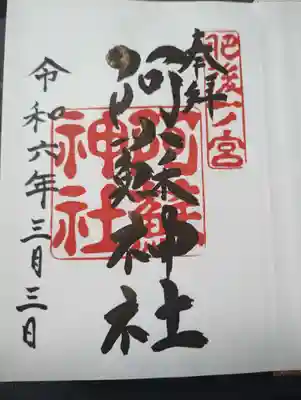 肥後一ノ宮
奉拝
阿蘇神社
阿蘇神社
令和六年三月三日